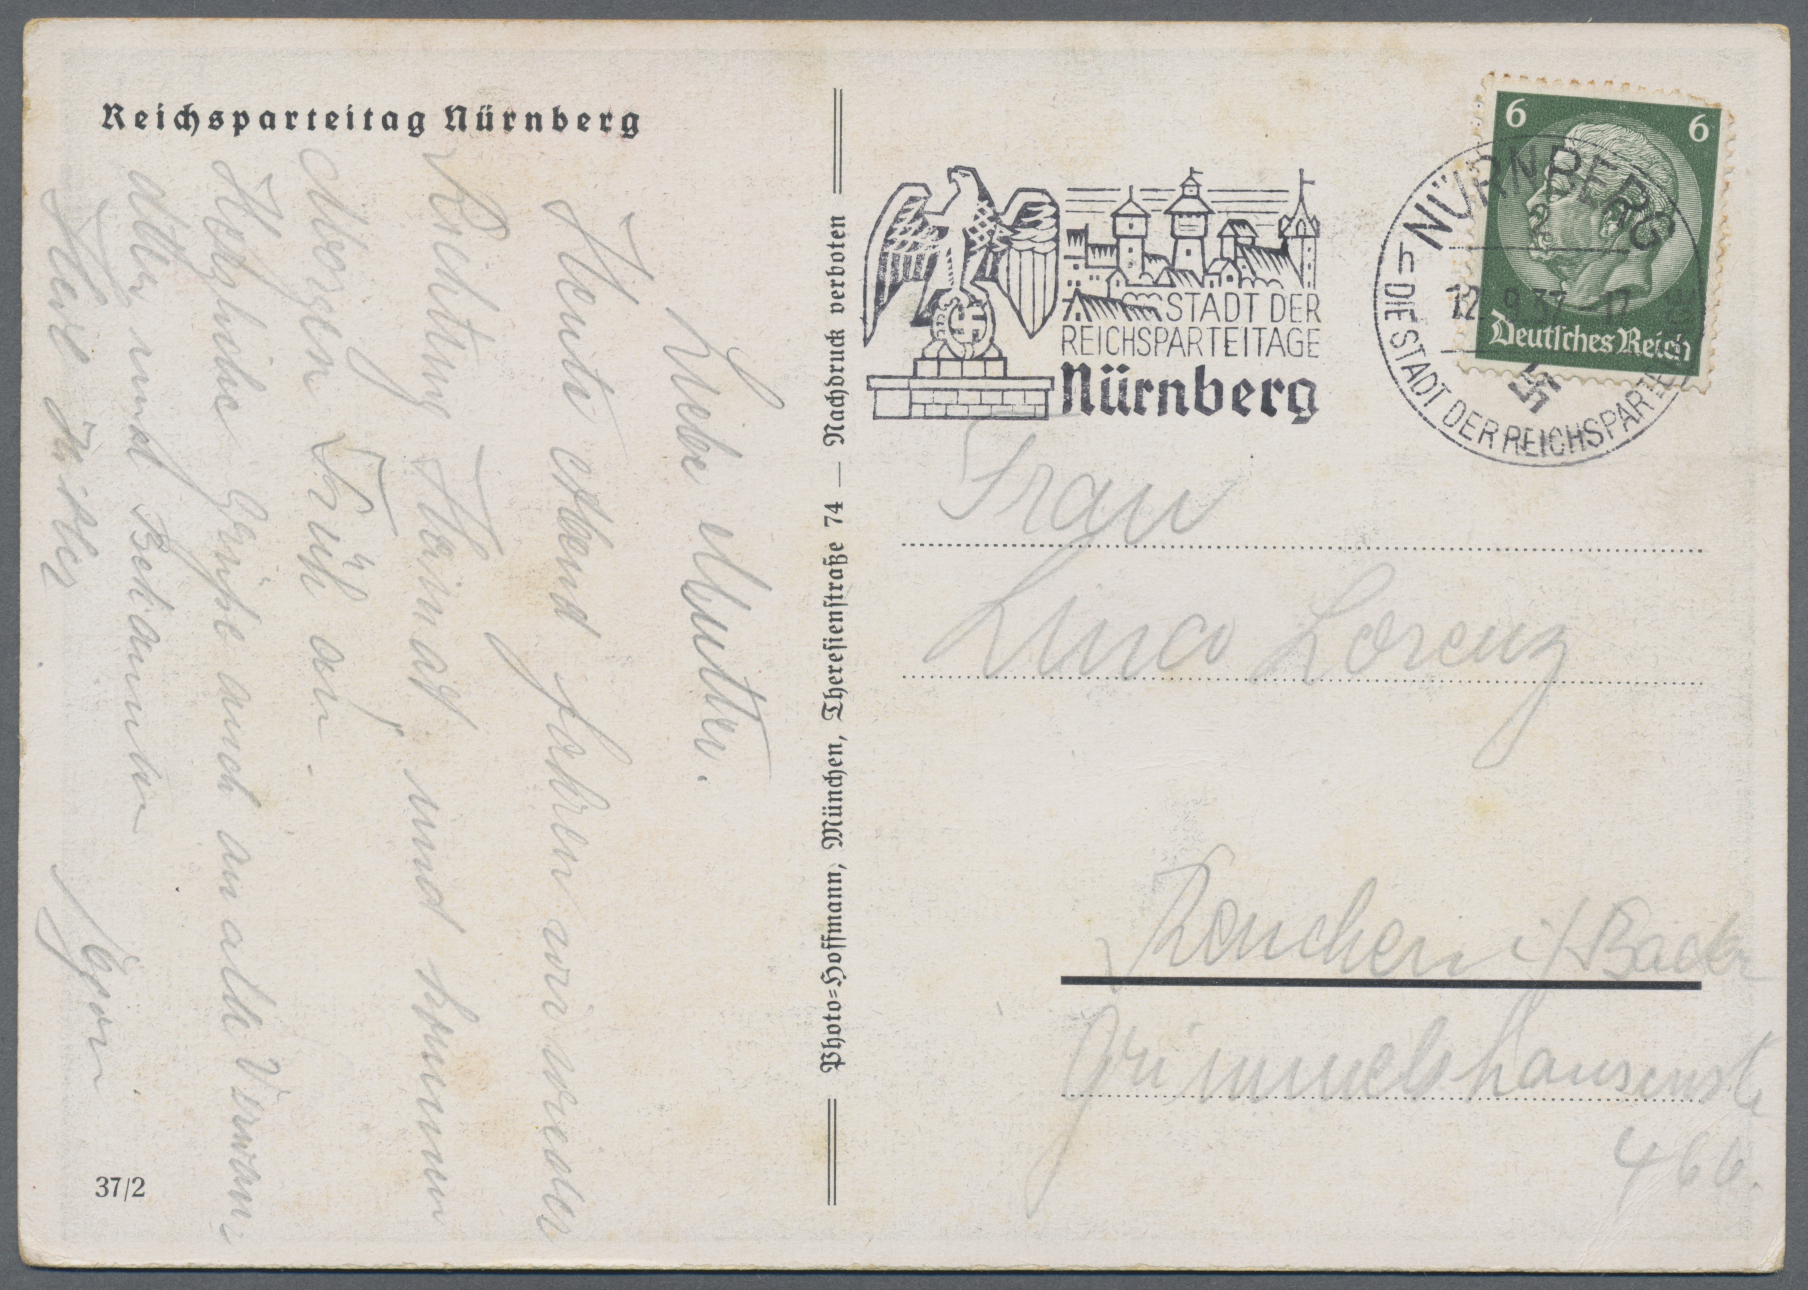 Reichsparteitag Nürnberg
Liebe Mutter.
Heute Abend fahren wir wieder
Richtung Heimat, und kommen
Morgen Früh an.
Herzliche Grüße auch an alle Verwan-
dten und Bekannten
Heil Hitler
Egon
37/2
Photo-Hoffmann, München, Theresienstraße 74 — Nachdruck verboten
STADT DER
REICHSPARTEITAGE
Nürnberg
6 6
Deutsches Reich
NÜRNBERG
2
12.9.37-17
DIE STADT DER REICHSPARTEI
Frau
Lorenz
Renchen i/Baden
Grimmelshausenstr
466.